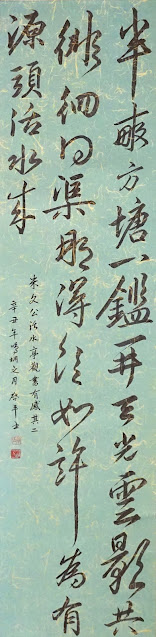 半畝方塘一鑑開天光雲影共
徘徊問渠那得清如許為有
源頭活水來
朱文公活水亭觀書有感其二
辛丑年鳴蜩之月